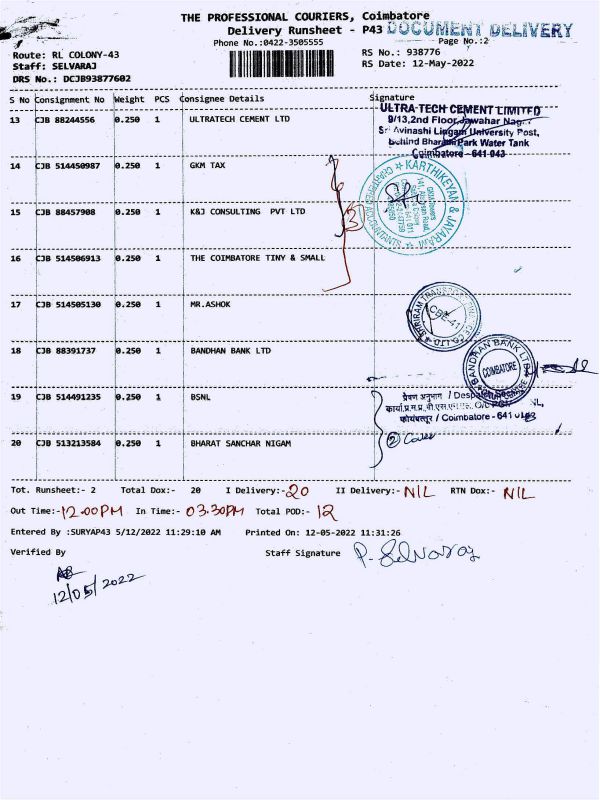 THE PROFESSIONAL COURIERS, Coimbatore
Delivery Runsheet - P43 DOCUMENT DELIVERY
Phone No.:0422-3505555 Page No.:2
Route: RL COLONY-43 RS No.: 938776
Staff: SELVARAJ RS Date: 12-May-2022
DRS No.: DCJB93877602
S No Consignment No Weight PCS Consignee Details Signature
13 CJB 88244556 0.250 1 ULTRATECH CEMENT LTD
ULTRA-TECH CEMENT LIMITED
9/13,2nd Floor,Jawahar Nagar
Sri Avinashi Lingam University Post,
Behind Bharathi Park Water Tank
Coimbatore - 641 043
14 CJB 514450987 0.250 1 GKM TAX
KARTHIKEYAN & JAYARAM
CHARTERED ACCOUNTANTS
15 CJB 88457908 0.250 1 K&J CONSULTING PVT LTD
3
16 CJB 514506913 0.250 1 THE COIMBATORE TINY & SMALL
17 CJB 514505130 0.250 1 MR.ASHOK
SHRIRAM TRANSPORT
CBE-41
18 CJB 88391737 0.250 1 BANDHAN BANK LTD
BANDHAN BANK LTD
COIMBATORE
19 CJB 514491235 0.250 1 BSNL
प्रेषण अनुभाग / Despatch
कोयंबत्तूर / Coimbatore - 641 043
20 CJB 513213584 0.250 1 BHARAT SANCHAR NIGAM
2 Cover
Tot. Runsheet:- 2 Total Dox:- 20 I Delivery:- 20 II Delivery:- NIL RTN Dox:- NIL
Out Time:- 12.00PM In Time:- 03.30PM Total POD:- 12
Entered By :SURYAP43 5/12/2022 11:29:10 AM Printed On: 12-05-2022 11:31:26
Verified By Staff Signature P. Selvaraj
12/05/2022